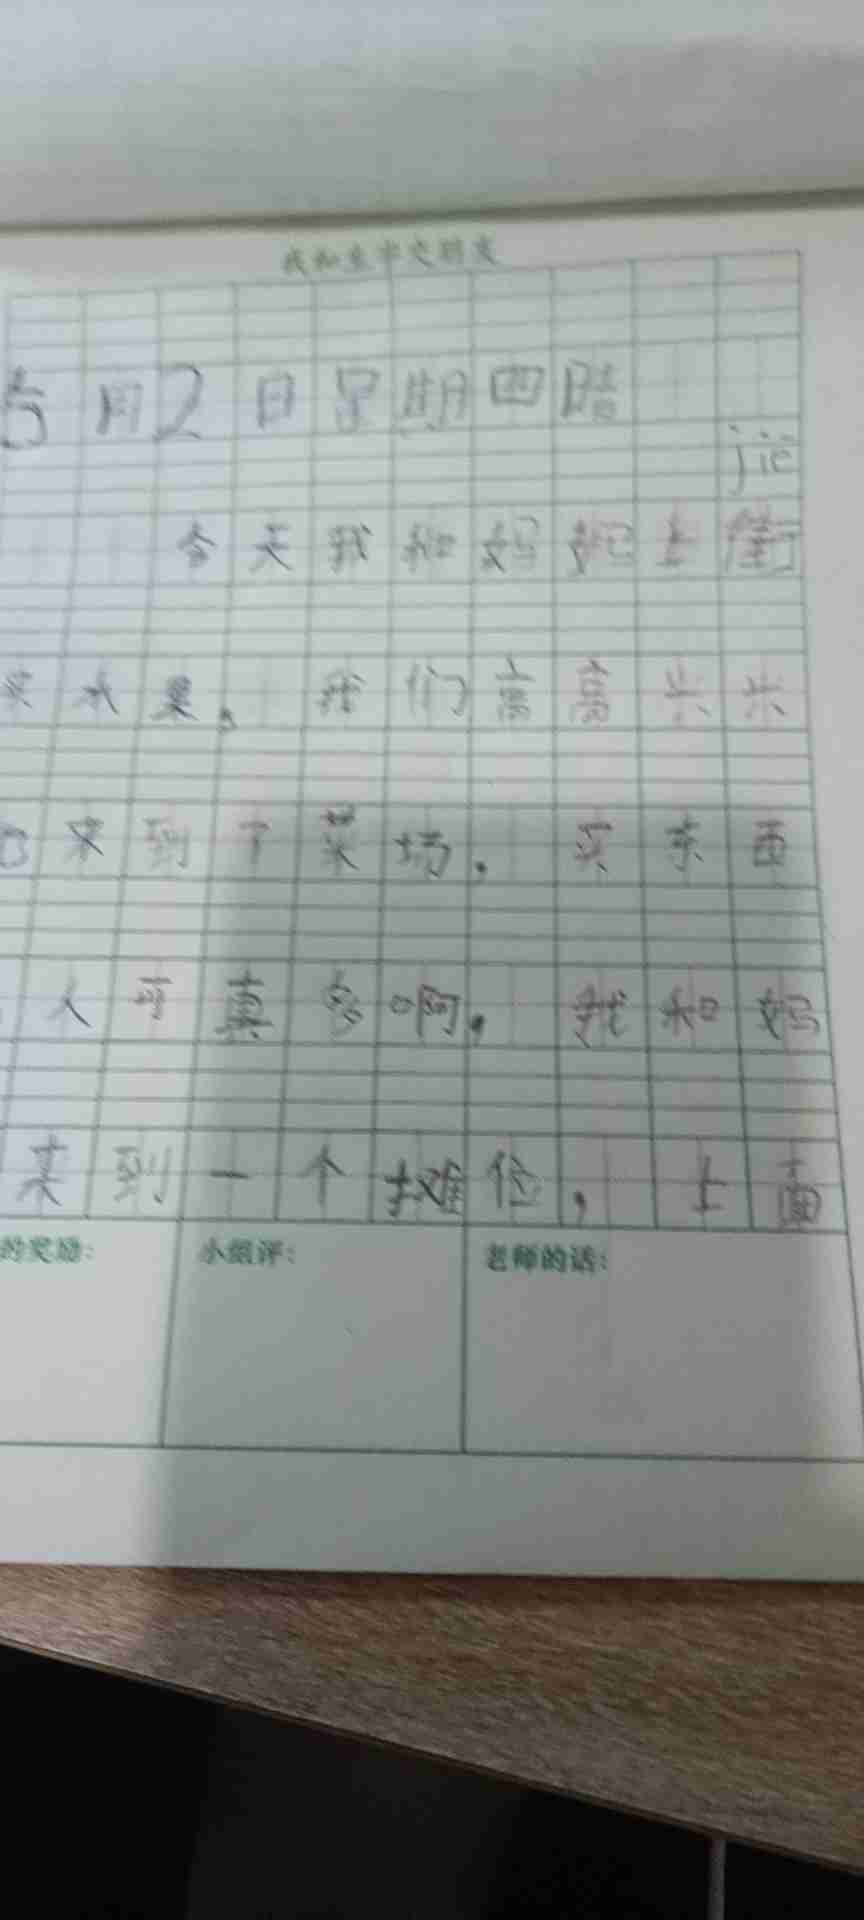 我和生字交朋友
5月2日星期四晴
jiē
今天我和妈妈上街
买水果。我们高高兴兴
来到了菜场。买东西
人可真多啊。我和妈
来到一个摊位,上面
的奖励: 小组评: 老师的话: